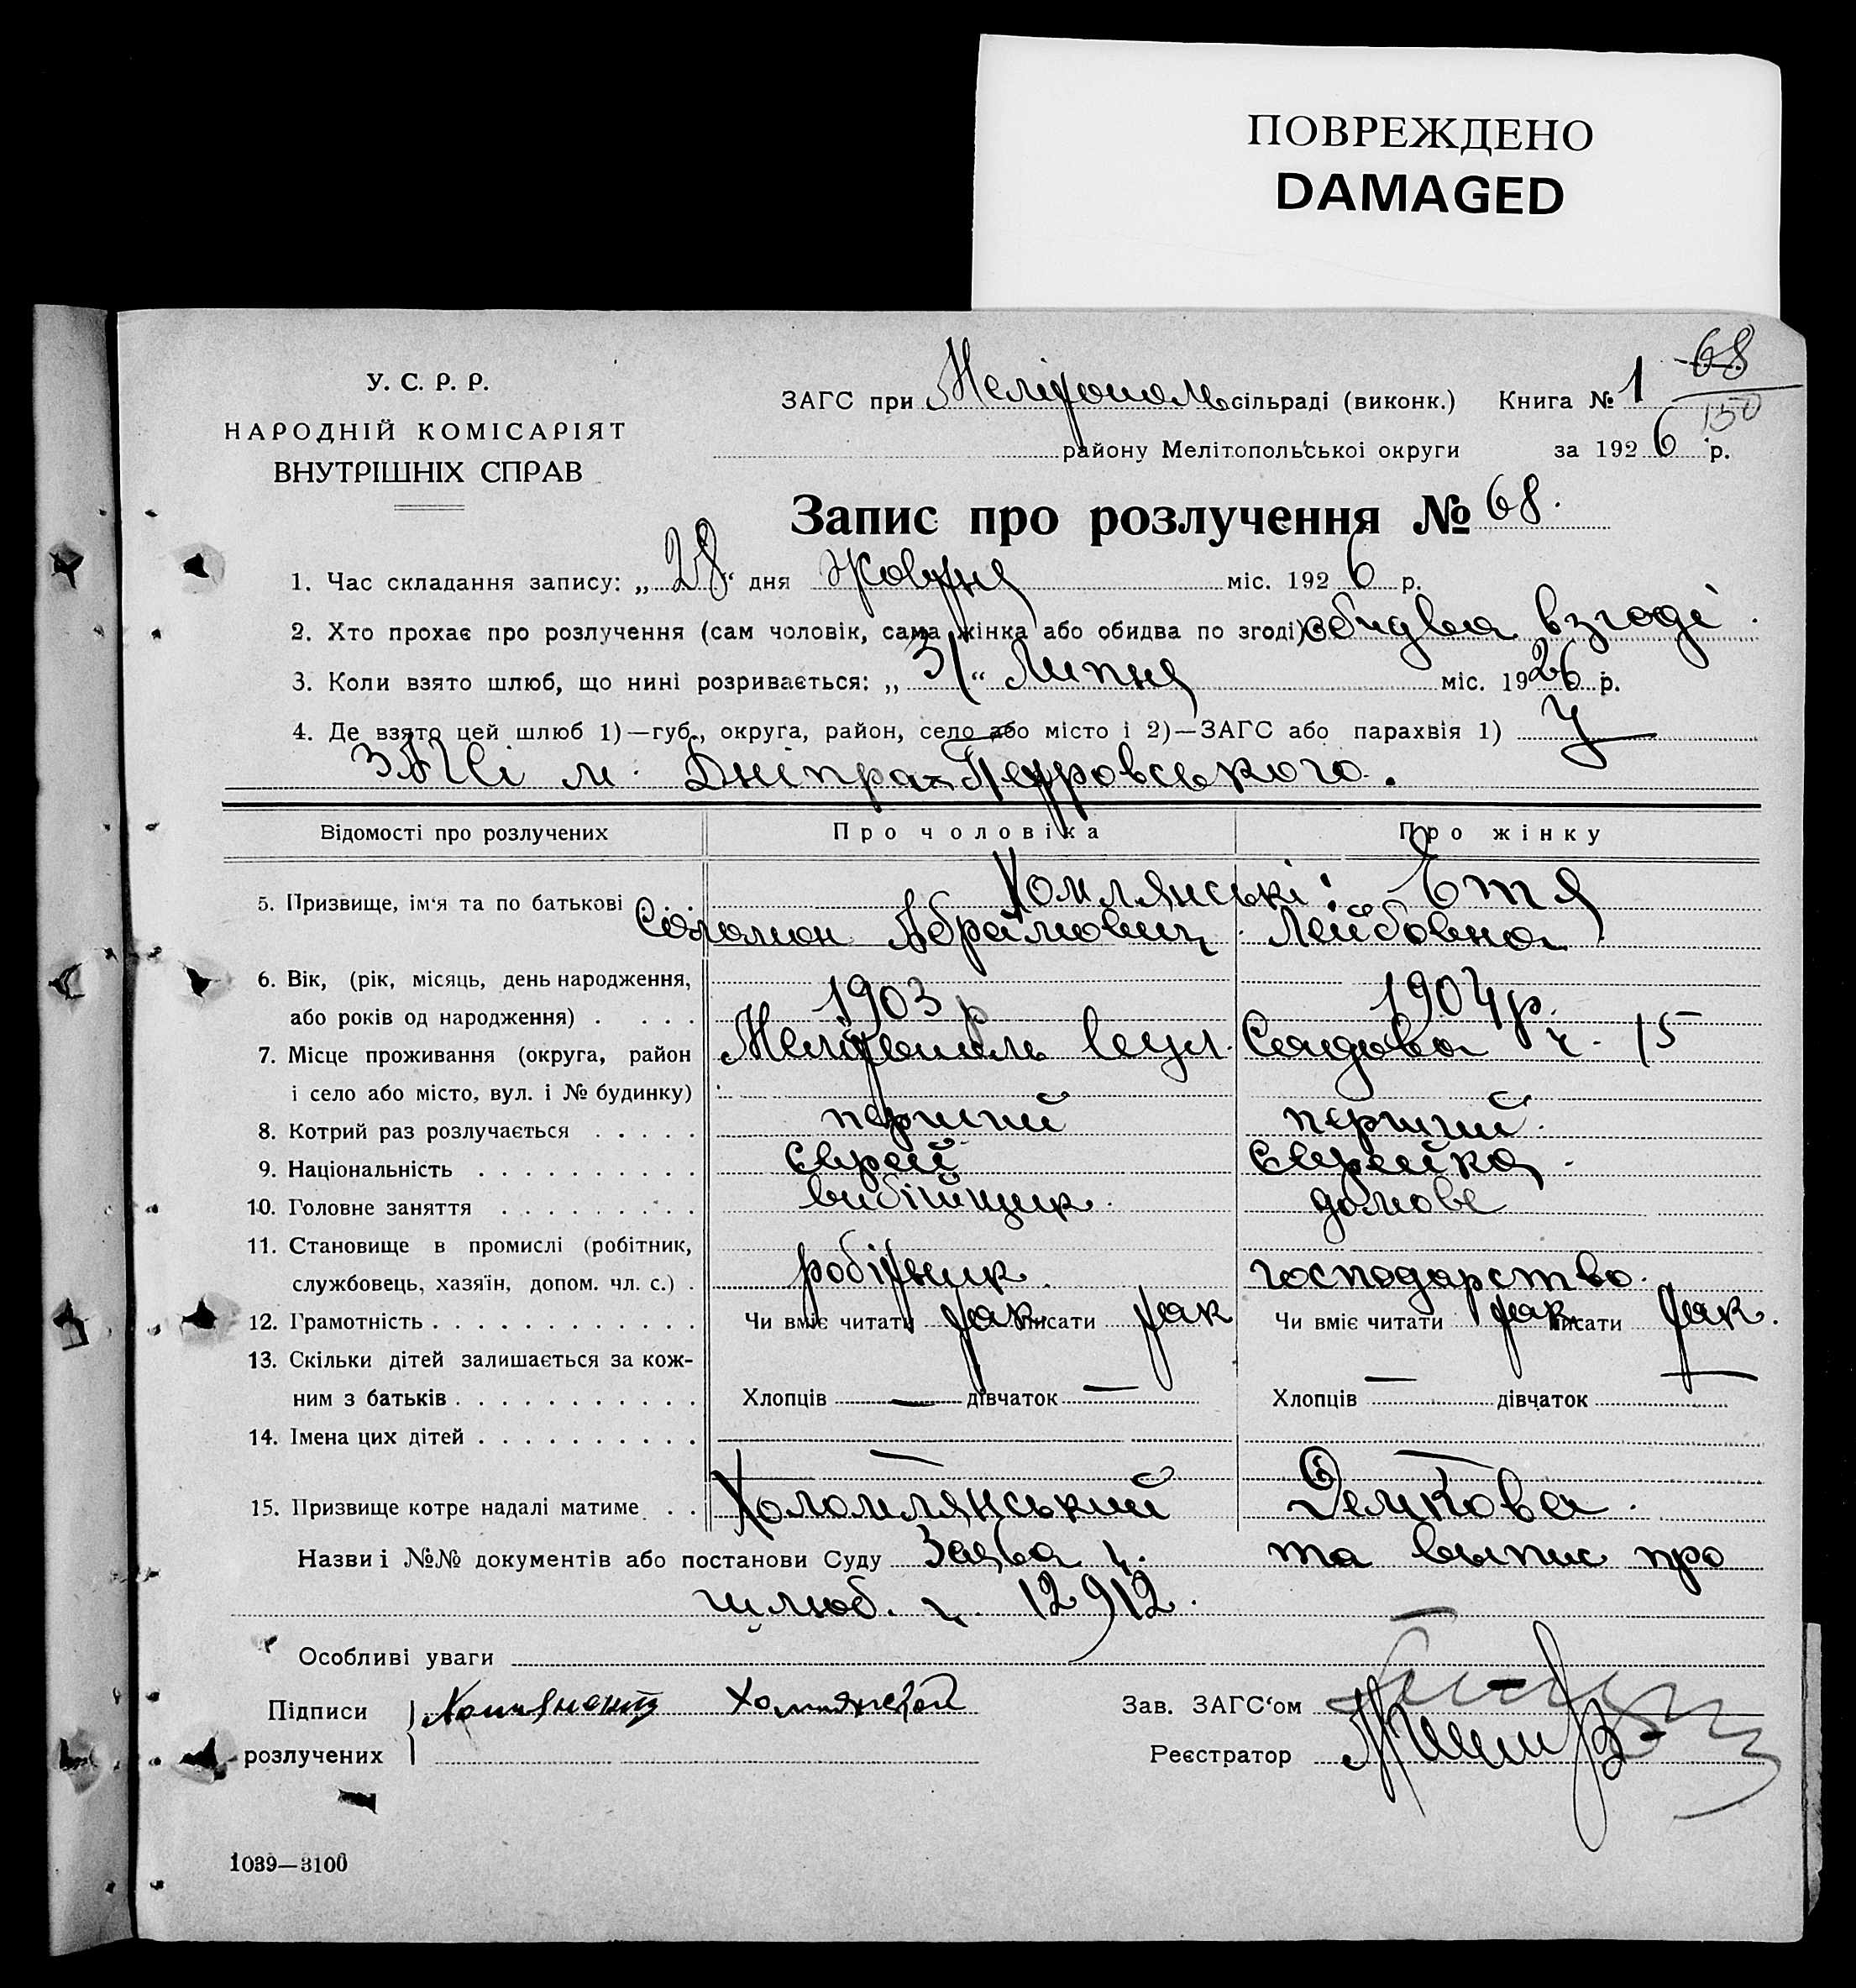 ПОВРЕЖДЕНО
DAMAGED
68
150
У. С. Р. Р.
НАРОДНІЙ КОМІСАРІЯТ
ВНУТРІШНІХ СПРАВ
ЗАГС при Мелітополь сільраді (виконк.) Книга № 1
району Мелітопольської округи за 1926 р.
Запис про розлучення № 68.
1. Час складання запису: „28“ дня Жовтня міс. 1926 р.
2. Хто прохає про розлучення (сам чоловік, сама жінка або обидва по згоді) обидва взгоді.
3. Коли взято шлюб, що нині розривається: „31“ Липня міс. 1926 р.
4. Де взято цей шлюб 1)—губ., округа, район, село або місто і 2)—ЗАГС або парахвія 1) У
ЗАГСі м. Дніпра-Петровського.
Відомості про розлучених Про чоловіка Про жінку
5. Призвище, ім'я та по батькові Хомлянські: Етя
Соломон Абрамович Лейбовна
6. Вік, (рік, місяць, день народження,
або років од народження) . . . . 1903 р 1904 р.
7. Місце проживання (округа, район Мелітополь вул. Садова ч. 15
і село або місто, вул. і № будинку)
8. Котрий раз розлучається . . . . . перший перший.
9. Національність . . . . . . . . . . Єврей Єврейка.
10. Головне заняття . . . . . . . . . вибійщик. домове
11. Становище в промислі (робітник,
службовець, хазяїн, допом. чл. с.) . робітник. господарство.
12. Грамотність . . . . . . . . . . . . Чи вміє читати так писати так Чи вміє читати так писати так.
13. Скільки дітей залишається за кож-
ним з батьків . . . . . . . . . . . Хлопців — дівчаток — Хлопців — дівчаток —
14. Імена цих дітей . . . . . . . . . .
— —
15. Призвище котре надалі матиме . . Холомлянський Демкова.
Назви і №№ документів або постанови Суду Заява ч. та выпис про
шлюб. ч. 12912.
Особливі уваги
Підписи Хомлянской Зав. ЗАГС'ом
розлучених Реєстратор
1039—3100